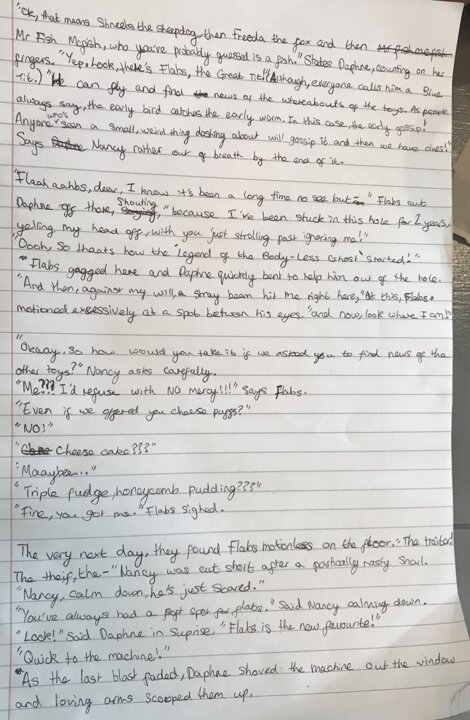 "Ok, that means Shreeks the sheepdog, then Freeda the fox and then
Mr Fish Mcpish, who you've probably guessed is a fish." States Daphne, counting on her
fingers. "Yep. Look, there's Flabs, the Great Tit! (Although, everyone calls him a Blue
Tit.) "He can fly and find the news of the whereabouts of the toys. As people
always say, the early bird catches the early worm. In this case, the early gossip!
Anyone who's seen a small, weird thing dashing about will gossip it and then we have clues!"
Says Nancy rather out of breath by the end of it.
"Flaah aahbs, dear, I know it's been a long time no see but-" Flabs cut
Daphne off there, shouting, "because I've been stuck in this hole for 2 years,
yelling my head off, with you just strolling past ignoring me!"
"Oooh, So thaats how the "Legend of the Body-Less Ghost" started!"
Flabs gagged here and Daphne quickly bent to help him out of the hole.
"And then, against my will, a stray beam hit me right here," At this, Flabs
motioned excessively at a spot between his eyes. "and now, look where I am!"
"Okaay, So how would you take it if we asked you to find news of the
other toys?" Nancy asks carefully.
"Me??? I'd refuse with NO mercy!!!" Says Flabs.
"Even if we offered you cheese puffs?"
"NO!"
"Cheese cake???"
"Maaybee..."
"Triple fudge, honeycomb pudding???"
"Fine, you got me." Flabs sighed.
The very next day, they found Flabs motionless on the floor. "The traitor!
The theif, the-" Nancy was cut short after a partically nasty Snarl.
"Nancy, calm down, he's just scared."
"You've always had a soft spot for flabs." Said Nancy calming down.
"Look!" said Daphne in Suprise, "Flabs is the new favourite!"
"Quick to the machine!"
"As the last blast faded, Daphne shoved the machine out the window
and loving arms scooped them up.